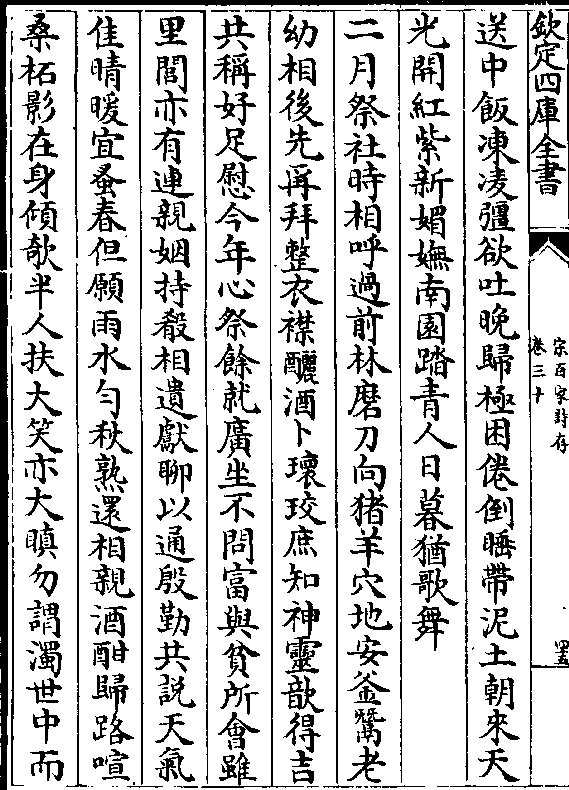 欽定四庫全書
宋百家詩存
卷三十
四五
送中飯凍凌彊欲吐晚歸極困倦倒睡帶泥土朝來天
光開紅紫新媚嫵南園踏青人日暮猶歌舞
二月祭社時相呼過前林磨刀向猪羊穴地安釜鬵老
幼相後先再拜整衣襟釃酒卜瓌珓庶知神靈歆得吉
共稱好足慰今年心祭餘就廣坐不問富與貧所會雖
里閭亦有連親姻持殽相遺獻聊以通殷勤共説天氣
佳晴暖宜蚕春但願雨水勻秋熟還相親酒酣歸路喧
桑柘影在身傾欹半人扶大笑亦大瞋勿謂濁世中而